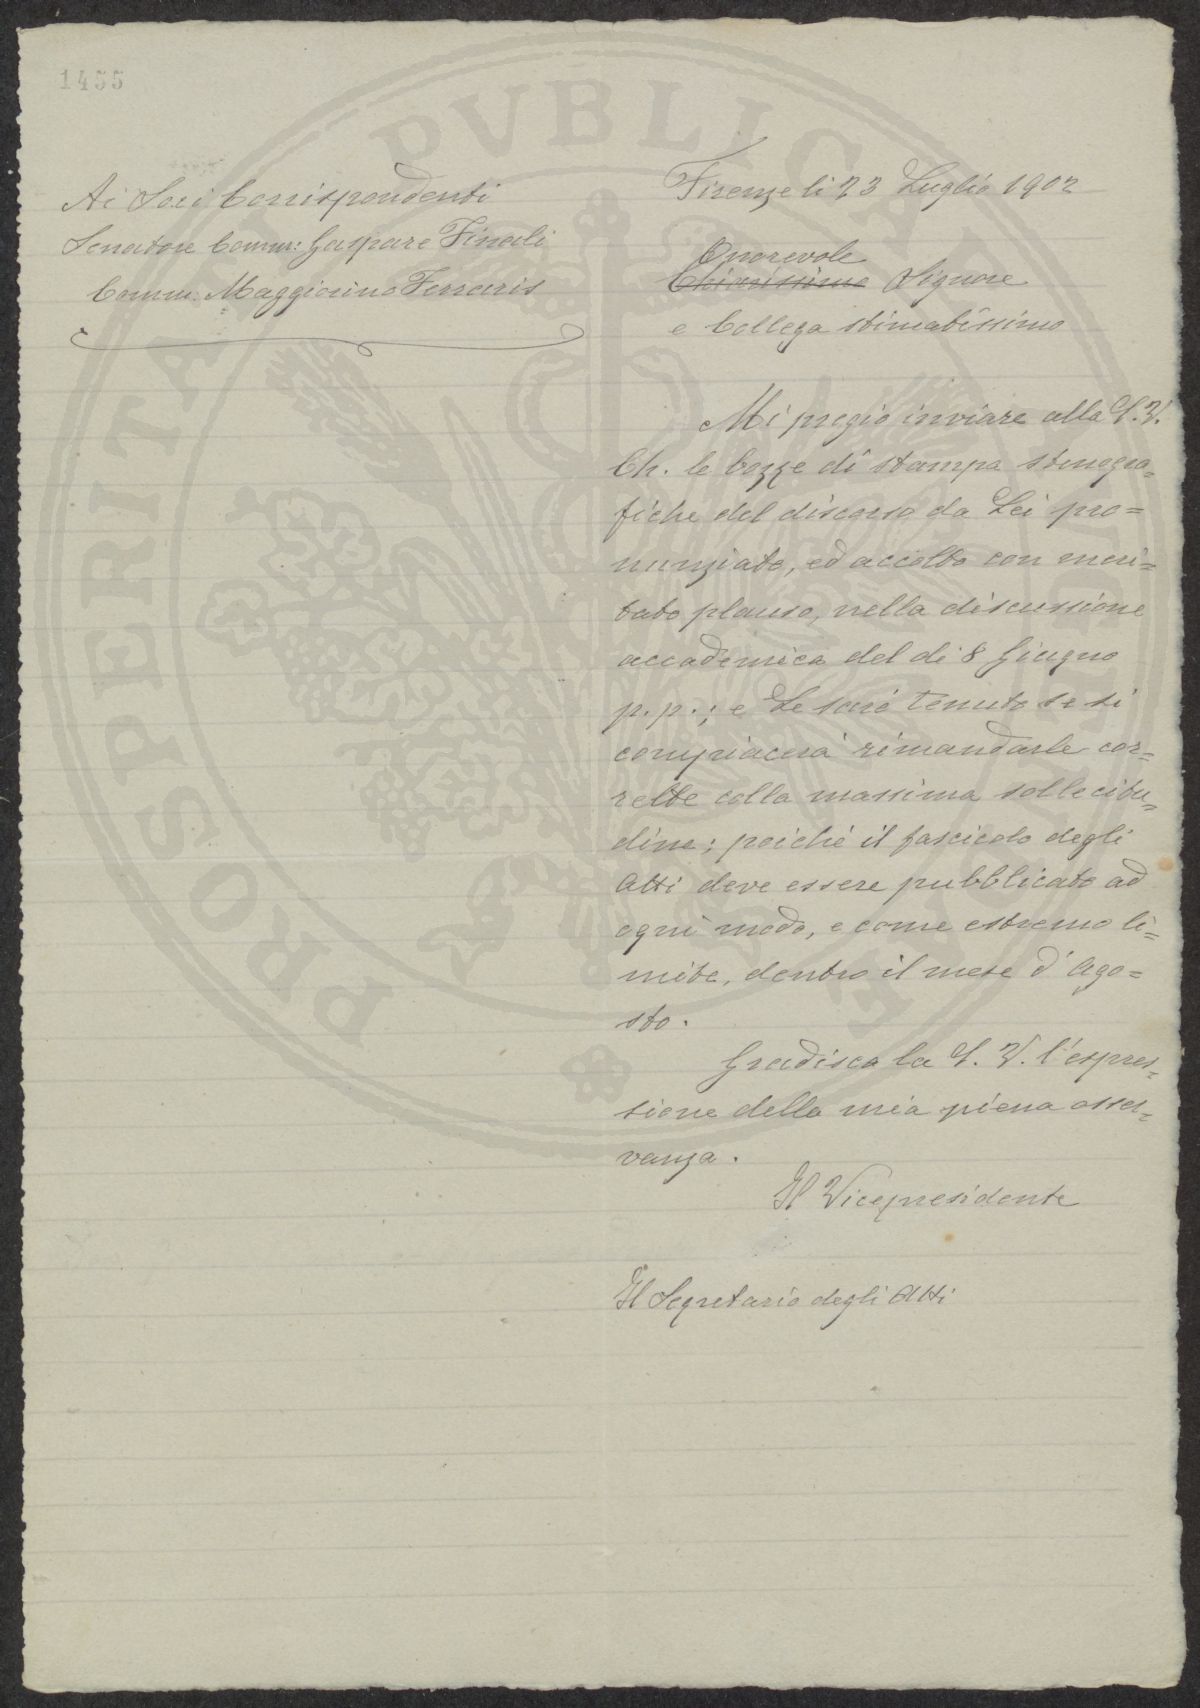 1455
Ai Soci Corrispondenti
Senatore Comm: Gaspare Finali
Comm. Maggiorino Ferraris
Firenze li 23 Luglio 1902
Onorevole
Chiarissimo Signore
e Collega stimatissimo
Mi pregio inviare alla S.V.
Ch. le bozze di stampa stenogra=
fiche del discorso da Lei pro=
nunziato, ed accolto con meri=
tato plauso, nella discussione
accademica del di 8 Giugno
p.p.; e Le sarò tenuto se si
compiacerà rimandarle cor=
rette colla massima sollecitu=
dine; poichè il fascicolo degli
Atti deve essere pubblicato ad
ogni modo, e come estremo li=
mite, dentro il mese d'Ago=
sto.
Gradisca la S. V. l'espres=
sione della mia piena osser=
vanza.
Il Vicepresidente
Il Segretario degli Atti
PROSPERITATI PVBLICAE